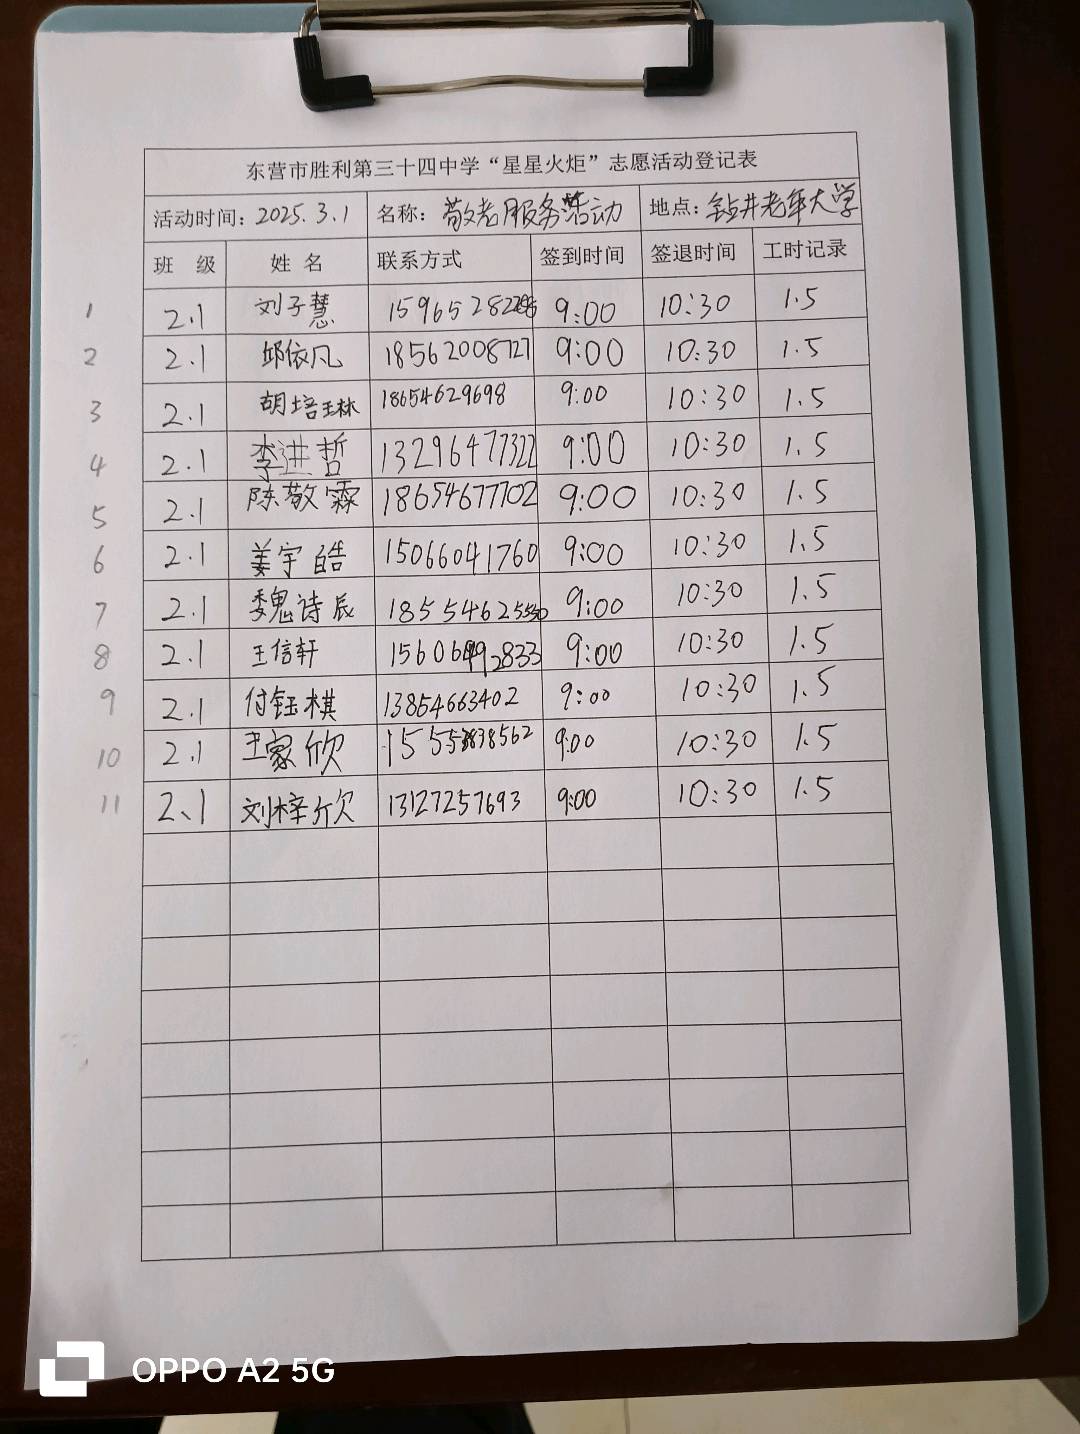 东营市胜利第三十四中学“星星火炬”志愿活动登记表
活动时间：2025.3.1 名称：敬老服务活动 地点：钻井老年大学
班 级 姓 名 联系方式 签到时间 签退时间 工时记录
1 2.1 刘子慧 9:00 10:30 1.5
2 2.1 邱依凡 18562008727 9:00 10:30 1.5
3 2.1 胡培琳 18654629698 9:00 10:30 1.5
4 2.1 李进哲 13296477322 9:00 10:30 1.5
5 2.1 陈敬霖 18654677702 9:00 10:30 1.5
6 2.1 姜宇皓 15066041760 9:00 10:30 1.5
7 2.1 魏诗辰 9:00 10:30 1.5
8 2.1 王信轩 9:00 10:30 1.5
9 2.1 付钰棋 13854663402 9:00 10:30 1.5
10 2.1 王家欣 9:00 10:30 1.5
11 2.1 刘梓欣 13127257693 9:00 10:30 1.5
OPPO A2 5G